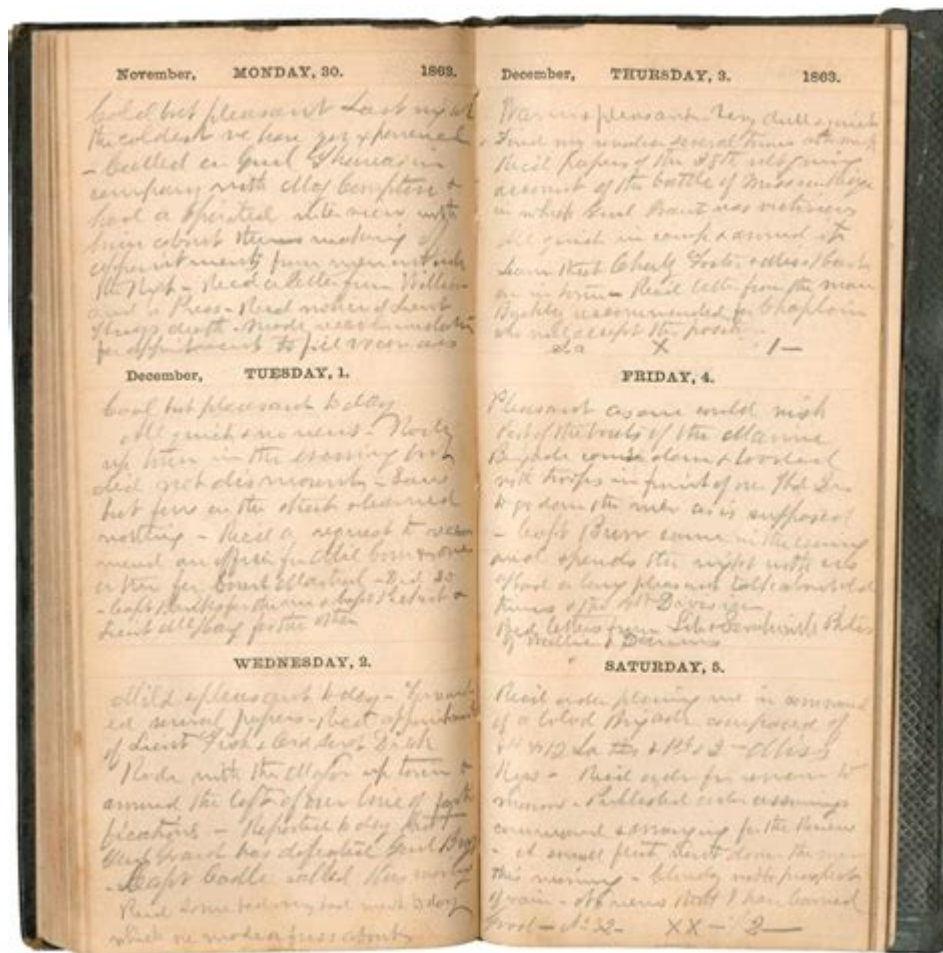 November, MONDAY, 30. 1863.
Cold but pleasant Last night
the coldest we have yet experienced
- Called on Genl Thomas in
company with Maj Compton &
had a spirited interview with
him about the making of
appointments from men outside
the Regt - Recd a letter from Willie
and a Press - Recd notice of Lieut
death - Made recommendation
for appointment to fill vacancies
December, TUESDAY, 1.
Cool but pleasant to day
All quiet & no news - Rode
up town in the evening but
did not dismount - Saw
but few on the street & learned
nothing - Recd a request to recom
mend an officer for Mil Com & one
for - Did so
- Capt for the one & Capt &
Lieut for the other
WEDNESDAY, 2.
Mild & pleasant to day - Forward
ed several papers - Recd appointments
of Lieut Fisk &
Rode with the Major up town &
around the left of our line of forti
fications - Reported to day that
Genl Grant has defeated Genl Bragg
- Capt Cadle called this morning
Recd some
which we made a fuss about
December, THURSDAY, 3. 1863.
Warm & pleasant - Very dull & quiet
Fired my revolver several times at
Recd papers of the 28th ult giving
account of the battle of Mission Ridge
in which Genl Grant was victorious
All quiet in camp & around it
Learn that Charly Foster &
are in town - Recd letter from the man
recommended for Chaplain
who will accept the position
X 1 —
FRIDAY, 4.
Pleasant as one could wish
Part of the boats of the Marine
Brigade came down & loaded
with troops in front of our
to go down the river as is supposed
- Capt Burr came in the evening
and spends the night with us
Had a long pleasant talk about old
times & the 4th Division
Recd letters from
of Willie &
SATURDAY, 5.
Recd order placing me in command
of a Cold Brigade composed of
& 12 La & 1st & 3 - Miss
Regs - Recd order for review to
morrow - Published order assuming
command & arranging for the Review
- A small fleet went down the river
this morning - Cloudy with prospects
of rain - No news that I have learned
- No 32 - XX - 2 —